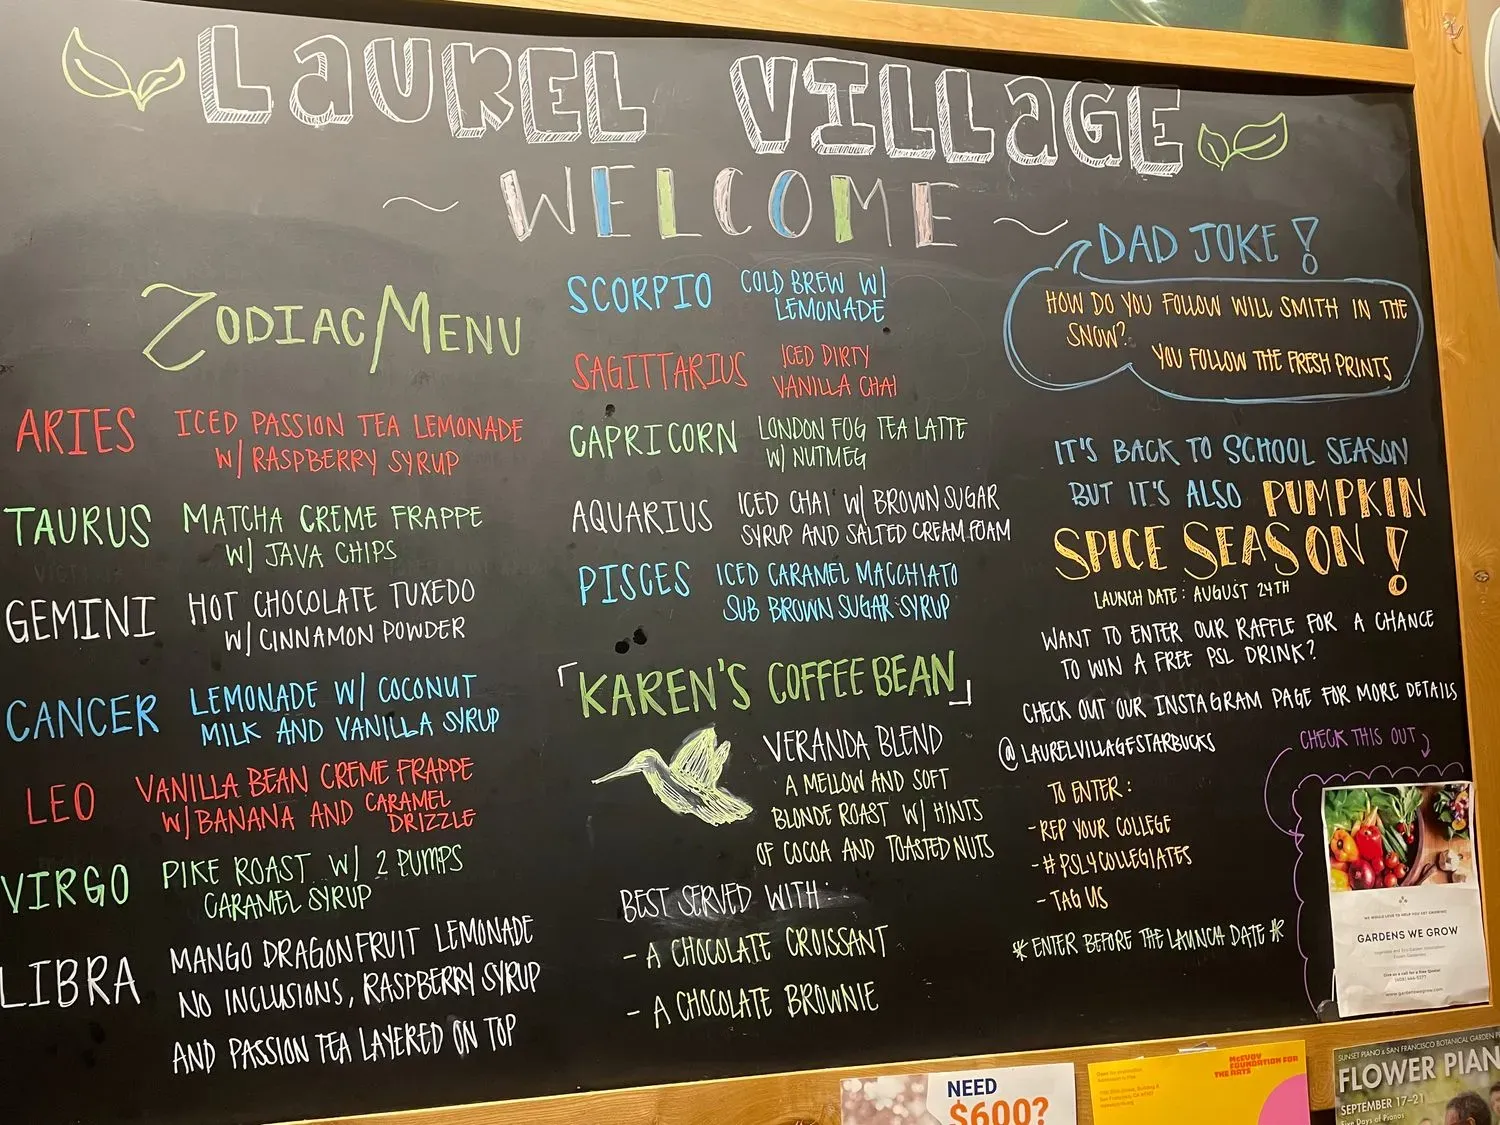 LAUREL VILLAGE
~ WELCOME ~
ZODIAC MENU
ARIES ICED PASSION TEA LEMONADE
W/ RASPBERRY SYRUP
TAURUS MATCHA CREME FRAPPE
W/ JAVA CHIPS
GEMINI HOT CHOCOLATE TUXEDO
W/ CINNAMON POWDER
CANCER LEMONADE W/ COCONUT
MILK AND VANILLA SYRUP
LEO VANILLA BEAN CREME FRAPPE
W/ BANANA AND CARAMEL
DRIZZLE
VIRGO PIKE ROAST W/ 2 PUMPS
CARAMEL SYRUP
LIBRA MANGO DRAGONFRUIT LEMONADE
NO INCLUSIONS, RASPBERRY SYRUP
AND PASSION TEA LAYERED ON TOP
SCORPIO COLD BREW W/
LEMONADE
SAGITTARIUS ICED DIRTY
VANILLA CHAI
CAPRICORN LONDON FOG TEA LATTE
W/ NUTMEG
AQUARIUS ICED CHAI W/ BROWN SUGAR
SYRUP AND SALTED CREAM FOAM
PISCES ICED CARAMEL MACCHIATO
SUB BROWN SUGAR SYRUP
「KAREN'S COFFEE BEAN」
VERANDA BLEND
A MELLOW AND SOFT
BLONDE ROAST W/ HINTS
OF COCOA AND TOASTED NUTS
BEST SERVED WITH:
- A CHOCOLATE CROISSANT
- A CHOCOLATE BROWNIE
DAD JOKE!
HOW DO YOU FOLLOW WILL SMITH IN THE
SNOW?
YOU FOLLOW THE FRESH PRINTS
IT'S BACK TO SCHOOL SEASON
BUT IT'S ALSO PUMPKIN
SPICE SEASON!
LAUNCH DATE: AUGUST 24TH
WANT TO ENTER OUR RAFFLE FOR A CHANCE
TO WIN A FREE PSL DRINK?
CHECK OUT OUR INSTAGRAM PAGE FOR MORE DETAILS
@LAURELVILLAGESTARBUCKS
TO ENTER:
- REP YOUR COLLEGE
- #PSL4COLLEGIATES
- TAG US
* ENTER BEFORE THE LAUNCH DATE *
CHECK THIS OUT
WE WOULD LOVE TO HELP YOU GET GROWING
GARDENS WE GROW
Give us a call for a free Quote!
www.gardenswegrow.com
NEED
$600?
McEVOY
FOUNDATION FOR
THE ARTS
SUNSET PIANO & SAN FRANCISCO BOTANICAL GARDEN
FLOWER PIAN
SEPTEMBER 17–21
Five Days of Pianos